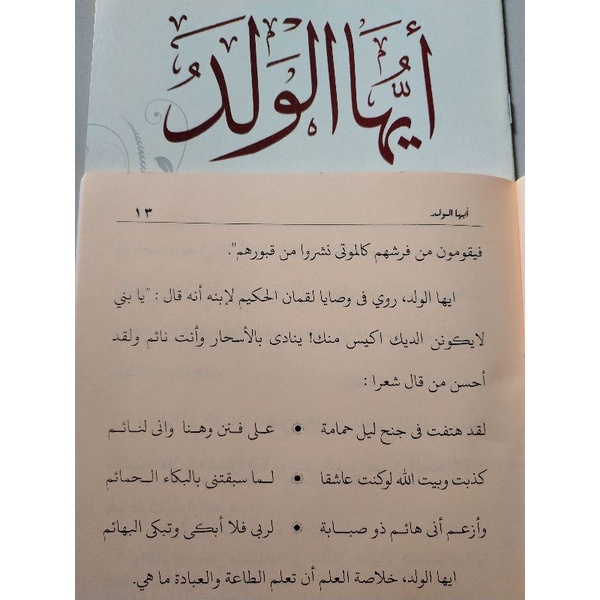 أيها الولد
أيها الولد ١٣
فيقومون من فرشهم كالموتى نشروا من قبورهم".
ايها الولد، روي فى وصايا لقمان الحكيم لإبنه أنه قال : "يا بني
لايكونن الديك اكيس منك! ينادى بالأسحار وأنت نائم ولقد
أحسن من قال شعرا :
لقد هتفت فى جنح ليل حمامة ۞ على فنن وهنا وانى لنائم
كذبت وبيت الله لوكنت عاشقا ۞ لما سبقتنى بالبكاء الحمائم
وأزعم أنى هائم ذو صبابة ۞ لربى فلا أبكى وتبكى البهائم
ايها الولد، خلاصة العلم أن تعلم الطاعة والعبادة ما هي.